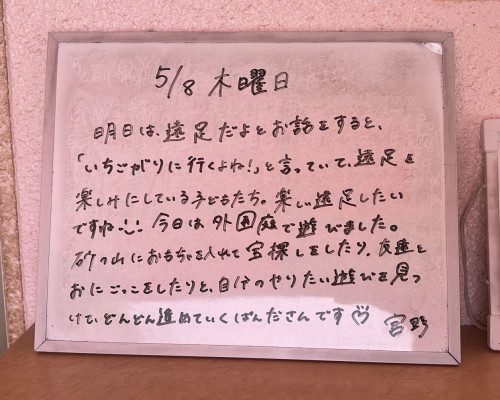 5/8 木曜日
明日は、遠足だよとお話をすると、
「いちごがりに行くよね!」と言っていて、遠足を
楽しみにしている子どもたち。楽しい遠足したい
ですね。！今日は外園庭で遊びました。
砂の山におもちゃを入れて宝探しをしたり、友達と
おにごっこをしたりと、自分のやりたい遊びを見つ
けて、どんどん進めていくぱんださんです♡ 宮野